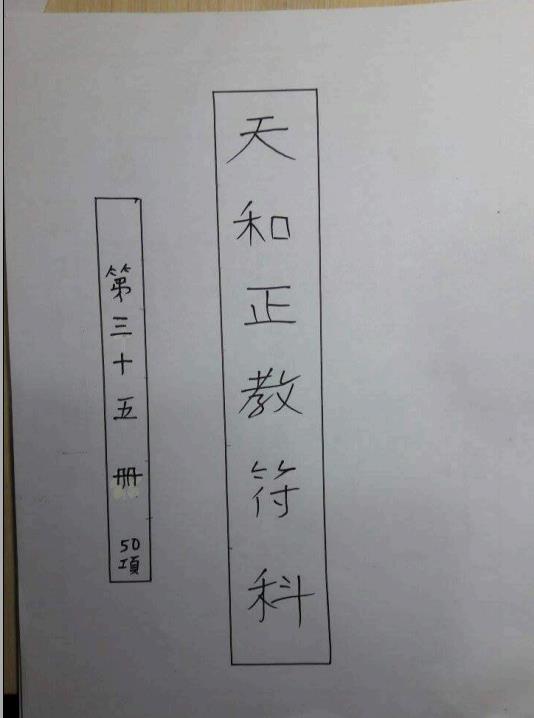 天和正教符科
第三十五冊 50項